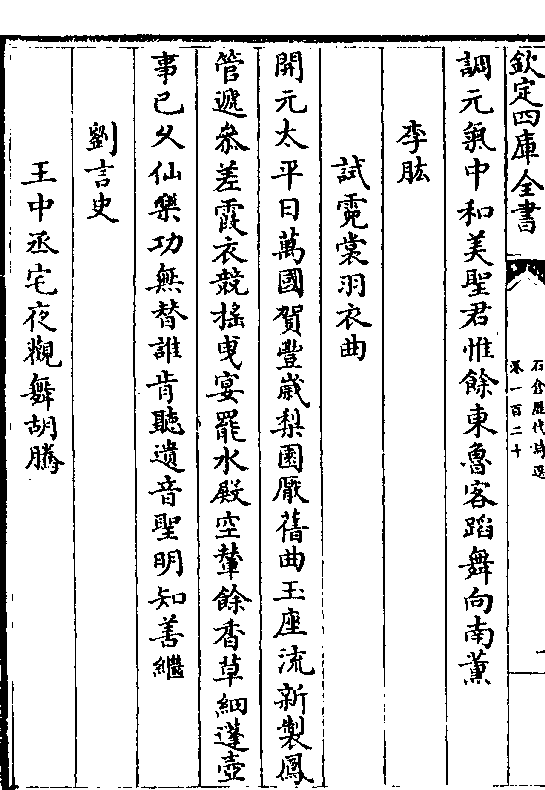 欽定四庫全書
石倉歷代詩選
卷一百二十
一
調元氣中和美聖君惟餘東魯客蹈舞向南薰
李肱
試霓裳羽衣曲
開元太平日萬國賀豐嵗梨園厭舊曲玉座流新製鳳
管遞叅差霞衣競揺曵宴罷水殿空輦餘香草細蓬壺
事已久仙樂功無替誰肯聽遺音聖明知善繼
劉言史
王中丞宅夜觀舞胡騰